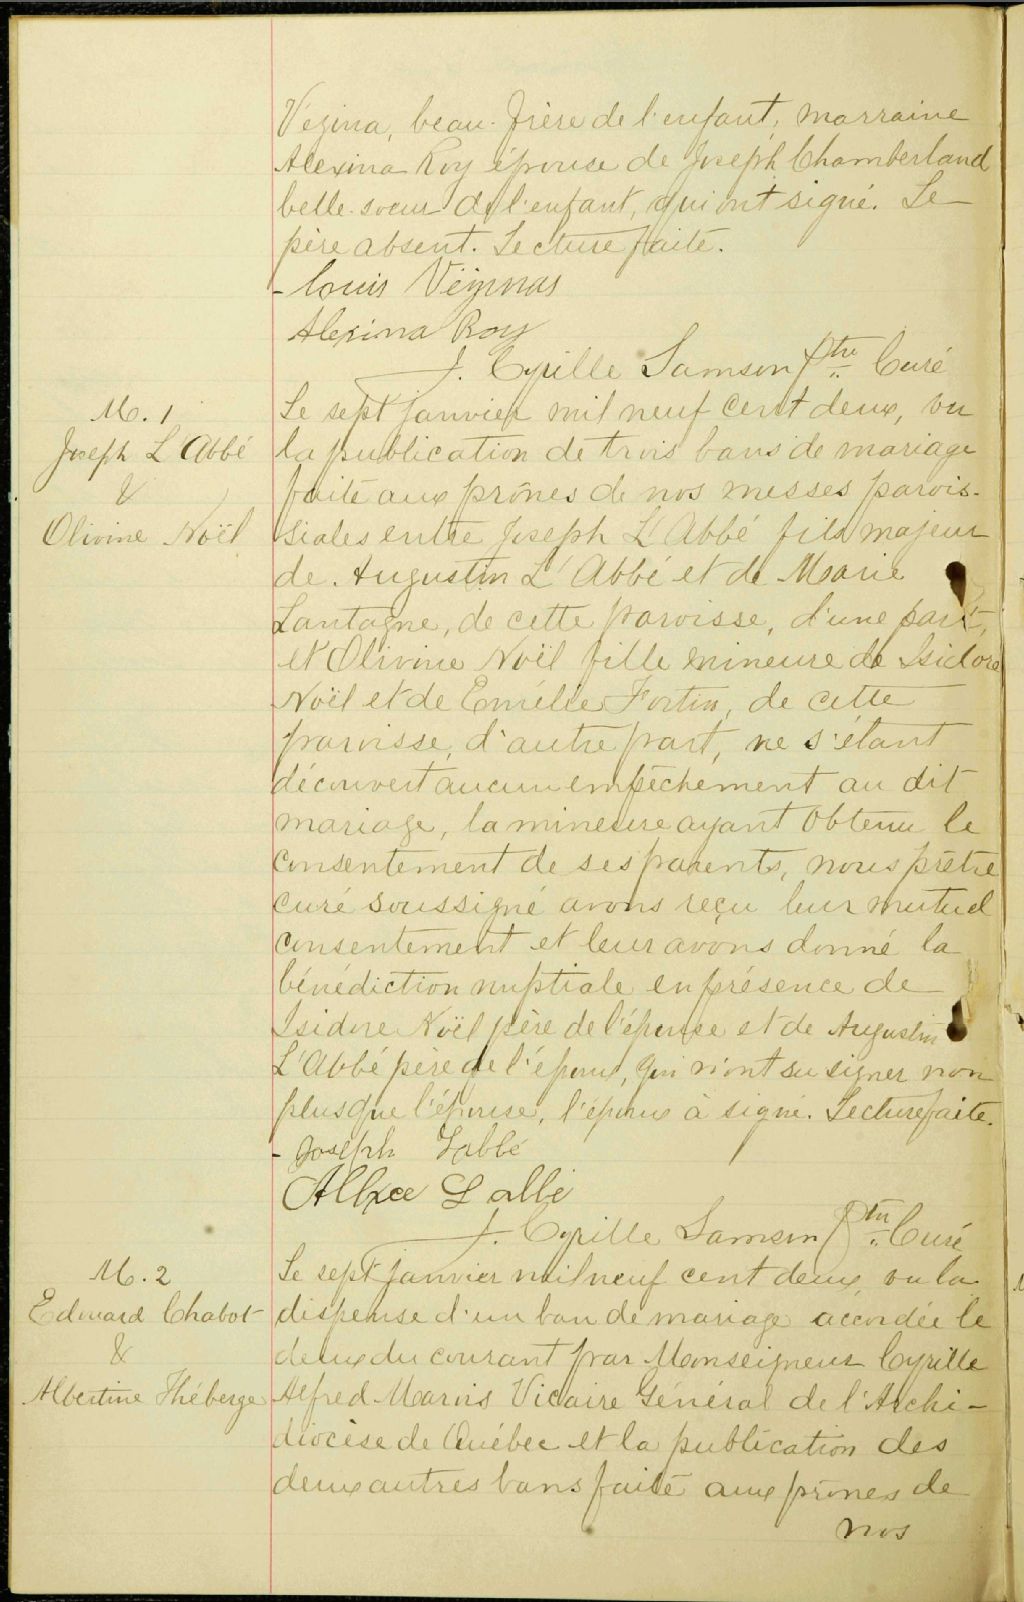 Vézina, beau-frère de l'enfant, marraine
Alexina Roy épouse de Joseph Chamberland
belle-sœur de l'enfant, qui ont signé. Le
père absent. Lecture faite.
- Louis Vézinas
Alexina Roy
J. Cyrille Samson Ptre Curé
M. 1
Joseph L'Abbé
&
Olivine Noël
Le sept janvier mil neuf cent deux, vu
la publication de trois bans de mariage
faite aux prônes de nos messes parois-
siales entre Joseph L'Abbé fils majeur
de Augustin L'Abbé et de Marie
Lantagne, de cette paroisse, d'une part,
et Olivine Noël fille mineure de Isidore
Noël et de Emélie Fortin, de cette
paroisse, d'autre part, ne s'étant
découvert aucun empêchement au dit
mariage, la mineure ayant obtenu le
consentement de ses parents, nous prêtre
curé soussigné avons reçu leur mutuel
consentement et leur avons donné la
bénédiction nuptiale en présence de
Isidore Noël père de l'épouse et de Augustin
L'Abbé père de l'époux, qui n'ont su signer non
plus que l'épouse, l'époux à signé. Lecture faite.
- Joseph Labbé
Labbé
J. Cyrille Samson Ptre Curé
M. 2
Edouard Chabot
&
Albertine Théberge
Le sept janvier mil neuf cent deux, vu la
dispense d'un ban de mariage accordée le
deux du courant par Monseigneur Cyrille
Alfred Marois Vicaire Général de l'Archi-
diocèse de Québec et la publication des
deux autres bans faite aux prônes de
nos